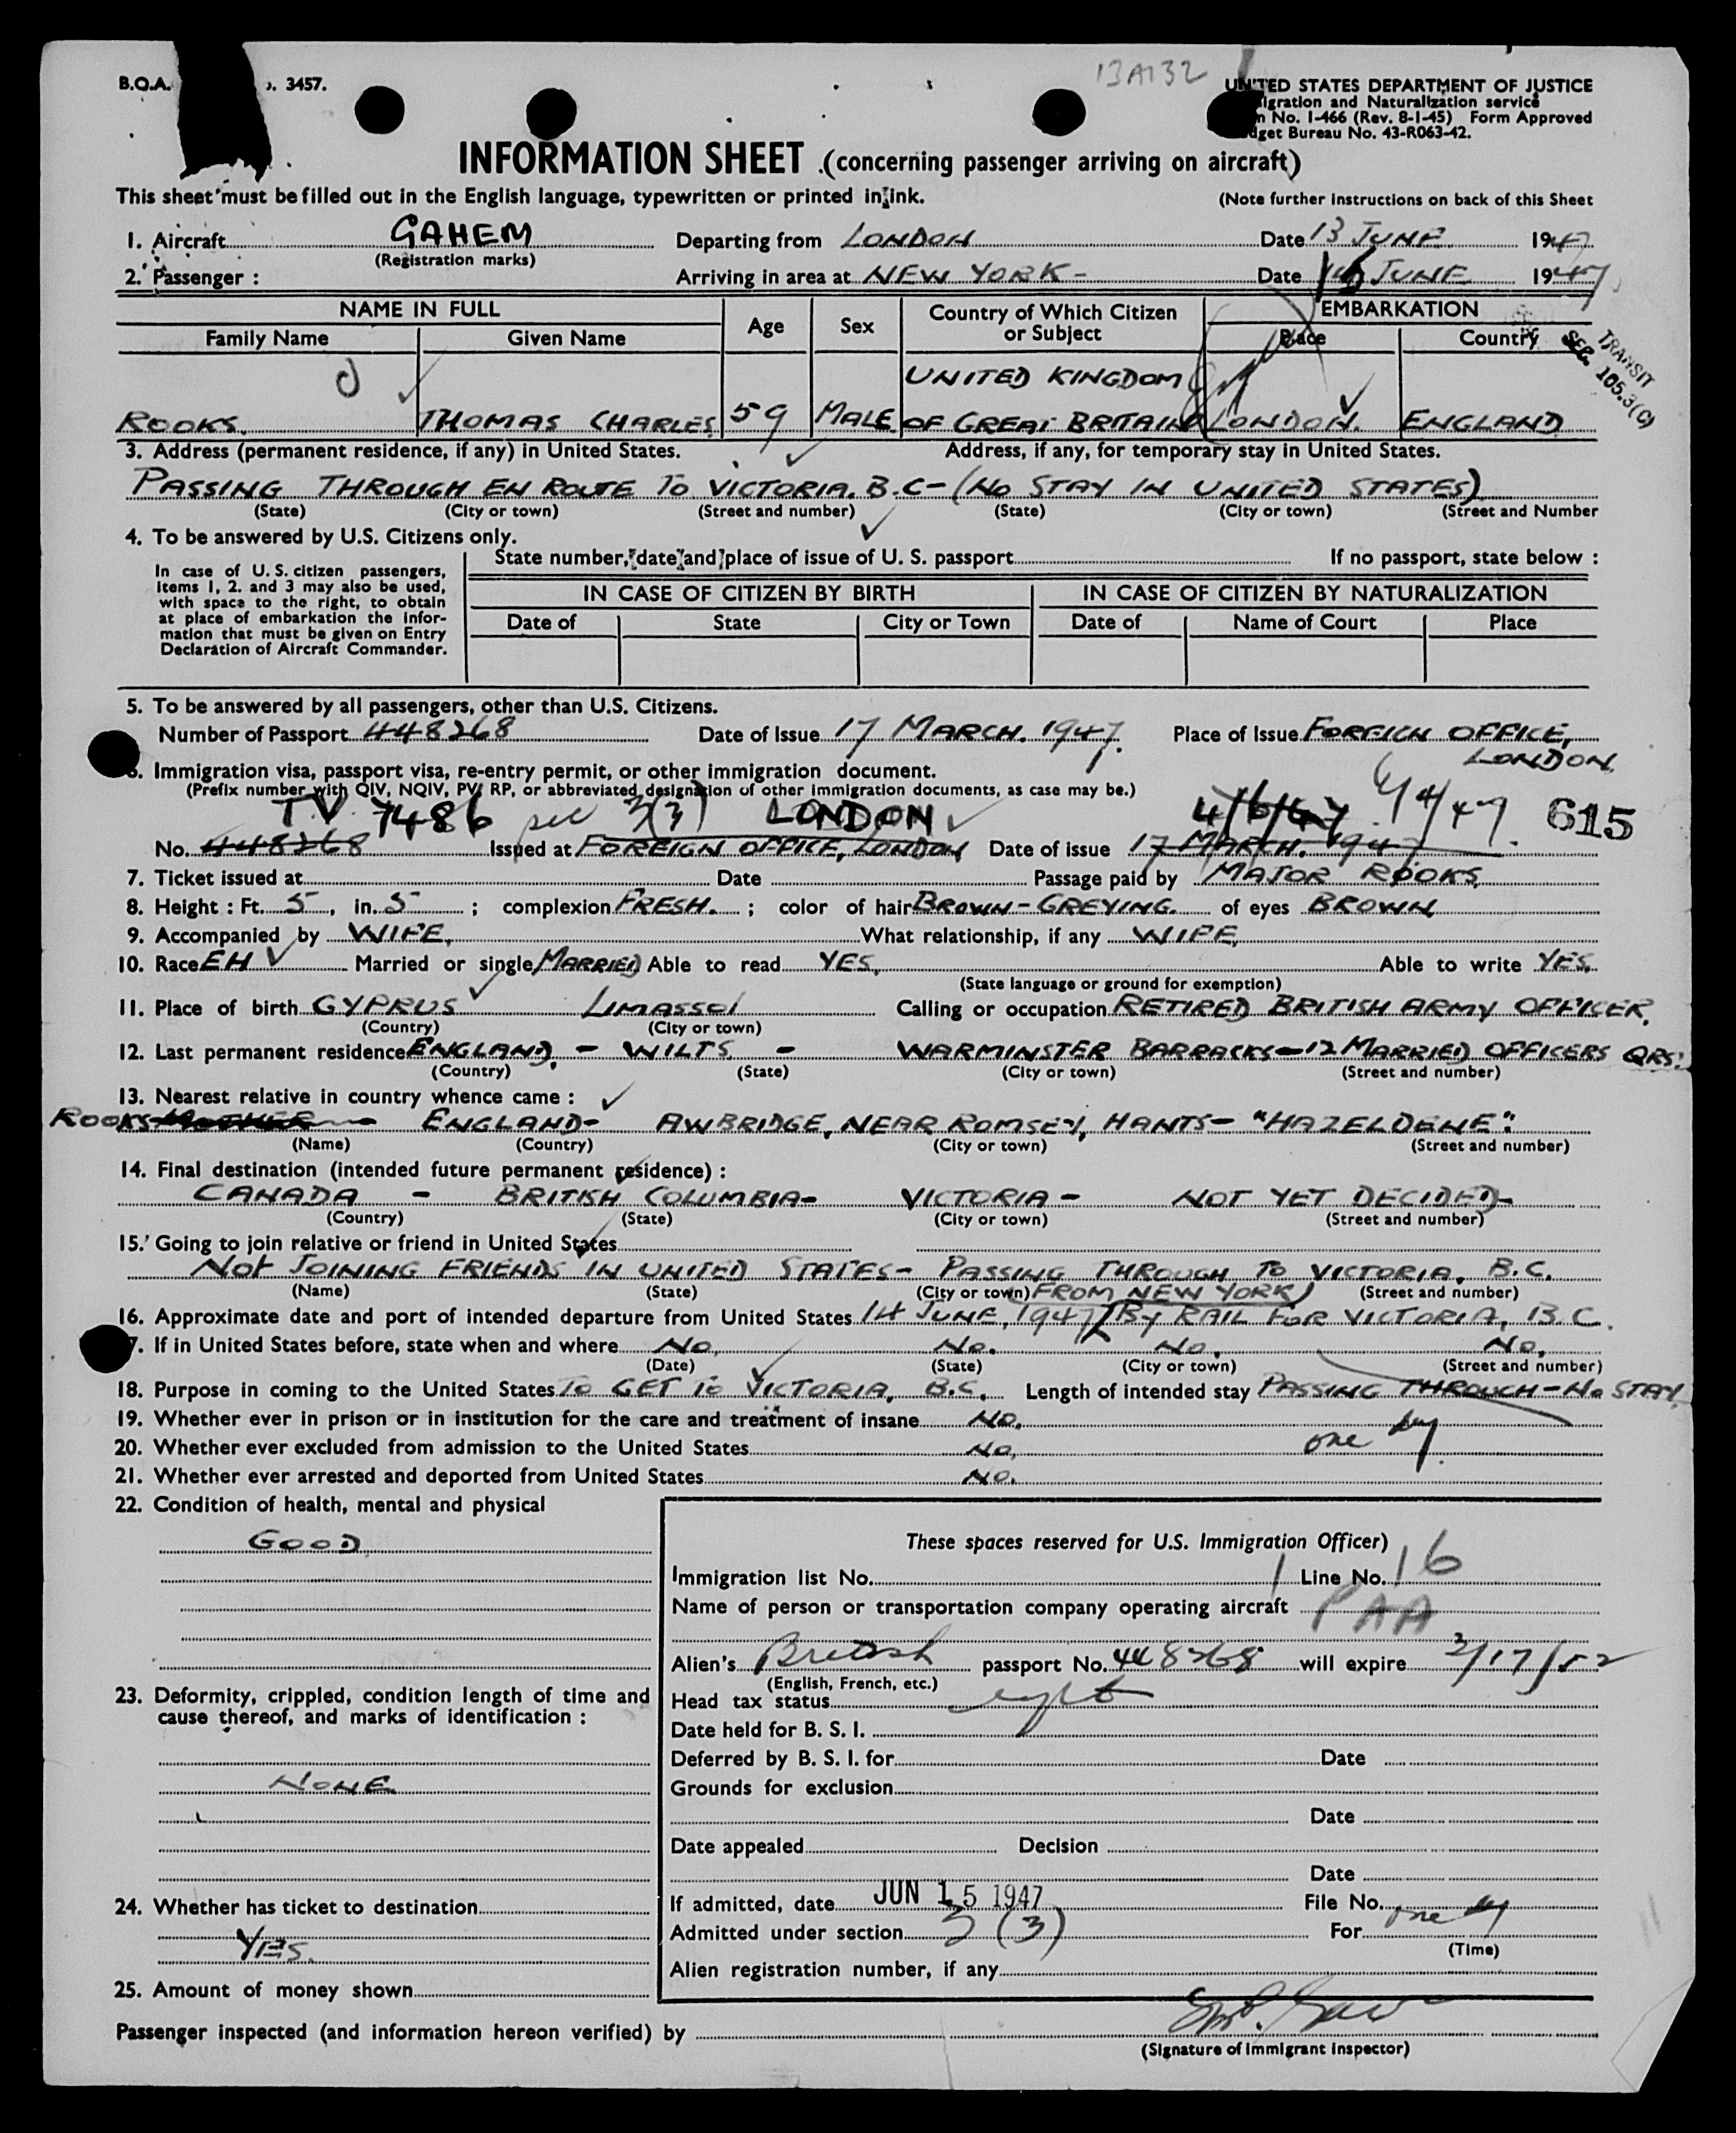 13A132
B.O.A. 3457.
UNITED STATES DEPARTMENT OF JUSTICE
igration and Naturalization service
No. I-466 (Rev. 8-1-45) Form Approved
get Bureau No. 43-R063-42.
INFORMATION SHEET (concerning passenger arriving on aircraft)
This sheet must be filled out in the English language, typewritten or printed in ink.
(Note further instructions on back of this Sheet
1. Aircraft GAHEM Departing from LONDON Date 13 JUNE 1947
(Registration marks)
2. Passenger : Arriving in area at NEW YORK - Date JUNE 1947
NAME IN FULL Age Sex Country of Which Citizen or Subject EMBARKATION
Family Name Given Name Place Country
TRANSIT
SEC. 105.3(C)
UNITED KINGDOM
ROOKS. THOMAS CHARLES. 59 MALE OF GREAT BRITAIN LONDON. ENGLAND
3. Address (permanent residence, if any) in United States. Address, if any, for temporary stay in United States.
PASSING THROUGH EN ROUTE TO VICTORIA. B.C- (NO STAY IN UNITED STATES)
(State) (City or town) (Street and number) (State) (City or town) (Street and Number
4. To be answered by U.S. Citizens only.
State number, date and place of issue of U. S. passport If no passport, state below :
In case of U. S. citizen passengers,
items 1, 2. and 3 may also be used,
with space to the right, to obtain
at place of embarkation the infor-
mation that must be given on Entry
Declaration of Aircraft Commander.
IN CASE OF CITIZEN BY BIRTH IN CASE OF CITIZEN BY NATURALIZATION
Date of State City or Town Date of Name of Court Place
5. To be answered by all passengers, other than U.S. Citizens.
Number of Passport 448268 Date of Issue 17 MARCH. 1947. Place of Issue FOREIGN OFFICE,
LONDON.
6. Immigration visa, passport visa, re-entry permit, or other immigration document.
(Prefix number with QIV, NQIV, PV, RP, or abbreviated designation of other immigration documents, as case may be.)
T.V. 7486 sec 3(3) LONDON 4/6/47 6/4/47 615
No. 448268 Issued at FOREIGN OFFICE, LONDON Date of issue 17 MARCH. 1947
7. Ticket issued at Date Passage paid by MAJOR ROOKS.
8. Height : Ft. 5, in. 5 ; complexion FRESH. ; color of hair BROWN-GREYING. of eyes BROWN
9. Accompanied by WIFE. What relationship, if any WIFE.
10. Race EH Married or single MARRIED Able to read YES. Able to write YES.
(State language or ground for exemption)
11. Place of birth CYPRUS LIMASSOL Calling or occupation RETIRED BRITISH ARMY OFFICER.
(Country) (City or town)
12. Last permanent residence ENGLAND. - WILTS - WARMINSTER BARRACKS-12 MARRIED OFFICERS QRS.
(Country) (State) (City or town) (Street and number)
13. Nearest relative in country whence came :
ROOKS-MOTHER - ENGLAND- AWBRIDGE, NEAR ROMSEY, HANTS- "HAZELDENE".
(Name) (Country) (City or town) (Street and number)
14. Final destination (intended future permanent residence) :
CANADA - BRITISH COLUMBIA- VICTORIA - NOT YET DECIDED-
(Country) (State) (City or town) (Street and number)
15. Going to join relative or friend in United States
NOT JOINING FRIENDS IN UNITED STATES- PASSING THROUGH TO VICTORIA. B.C.
(Name) (State) (City or town) (Street and number)
(FROM NEW YORK)
16. Approximate date and port of intended departure from United States 14 JUNE, 1947 BY RAIL FOR VICTORIA, B.C.
7. If in United States before, state when and where NO. NO. NO. NO.
(Date) (State) (City or town) (Street and number)
18. Purpose in coming to the United States TO GET TO VICTORIA, B.C. Length of intended stay PASSING THROUGH-NO STAY.
19. Whether ever in prison or in institution for the care and treatment of insane NO.
one day
20. Whether ever excluded from admission to the United States NO.
21. Whether ever arrested and deported from United States NO.
22. Condition of health, mental and physical
GOOD
These spaces reserved for U.S. Immigration Officer)
Immigration list No. 1 Line No. 16
Name of person or transportation company operating aircraft PAA
Alien's British passport No. 448268 will expire 3/17/52
(English, French, etc.)
23. Deformity, crippled, condition length of time and
cause thereof, and marks of identification :
NONE
Head tax status
Date held for B. S. I.
Deferred by B. S. I. for Date
Grounds for exclusion
Date
Date appealed Decision
Date
24. Whether has ticket to destination
YES.
If admitted, date JUN 15 1947 File No.
Admitted under section 3 (3) For one day
(Time)
Alien registration number, if any
25. Amount of money shown
Passenger inspected (and information hereon verified) by
(Signature of Immigrant Inspector)